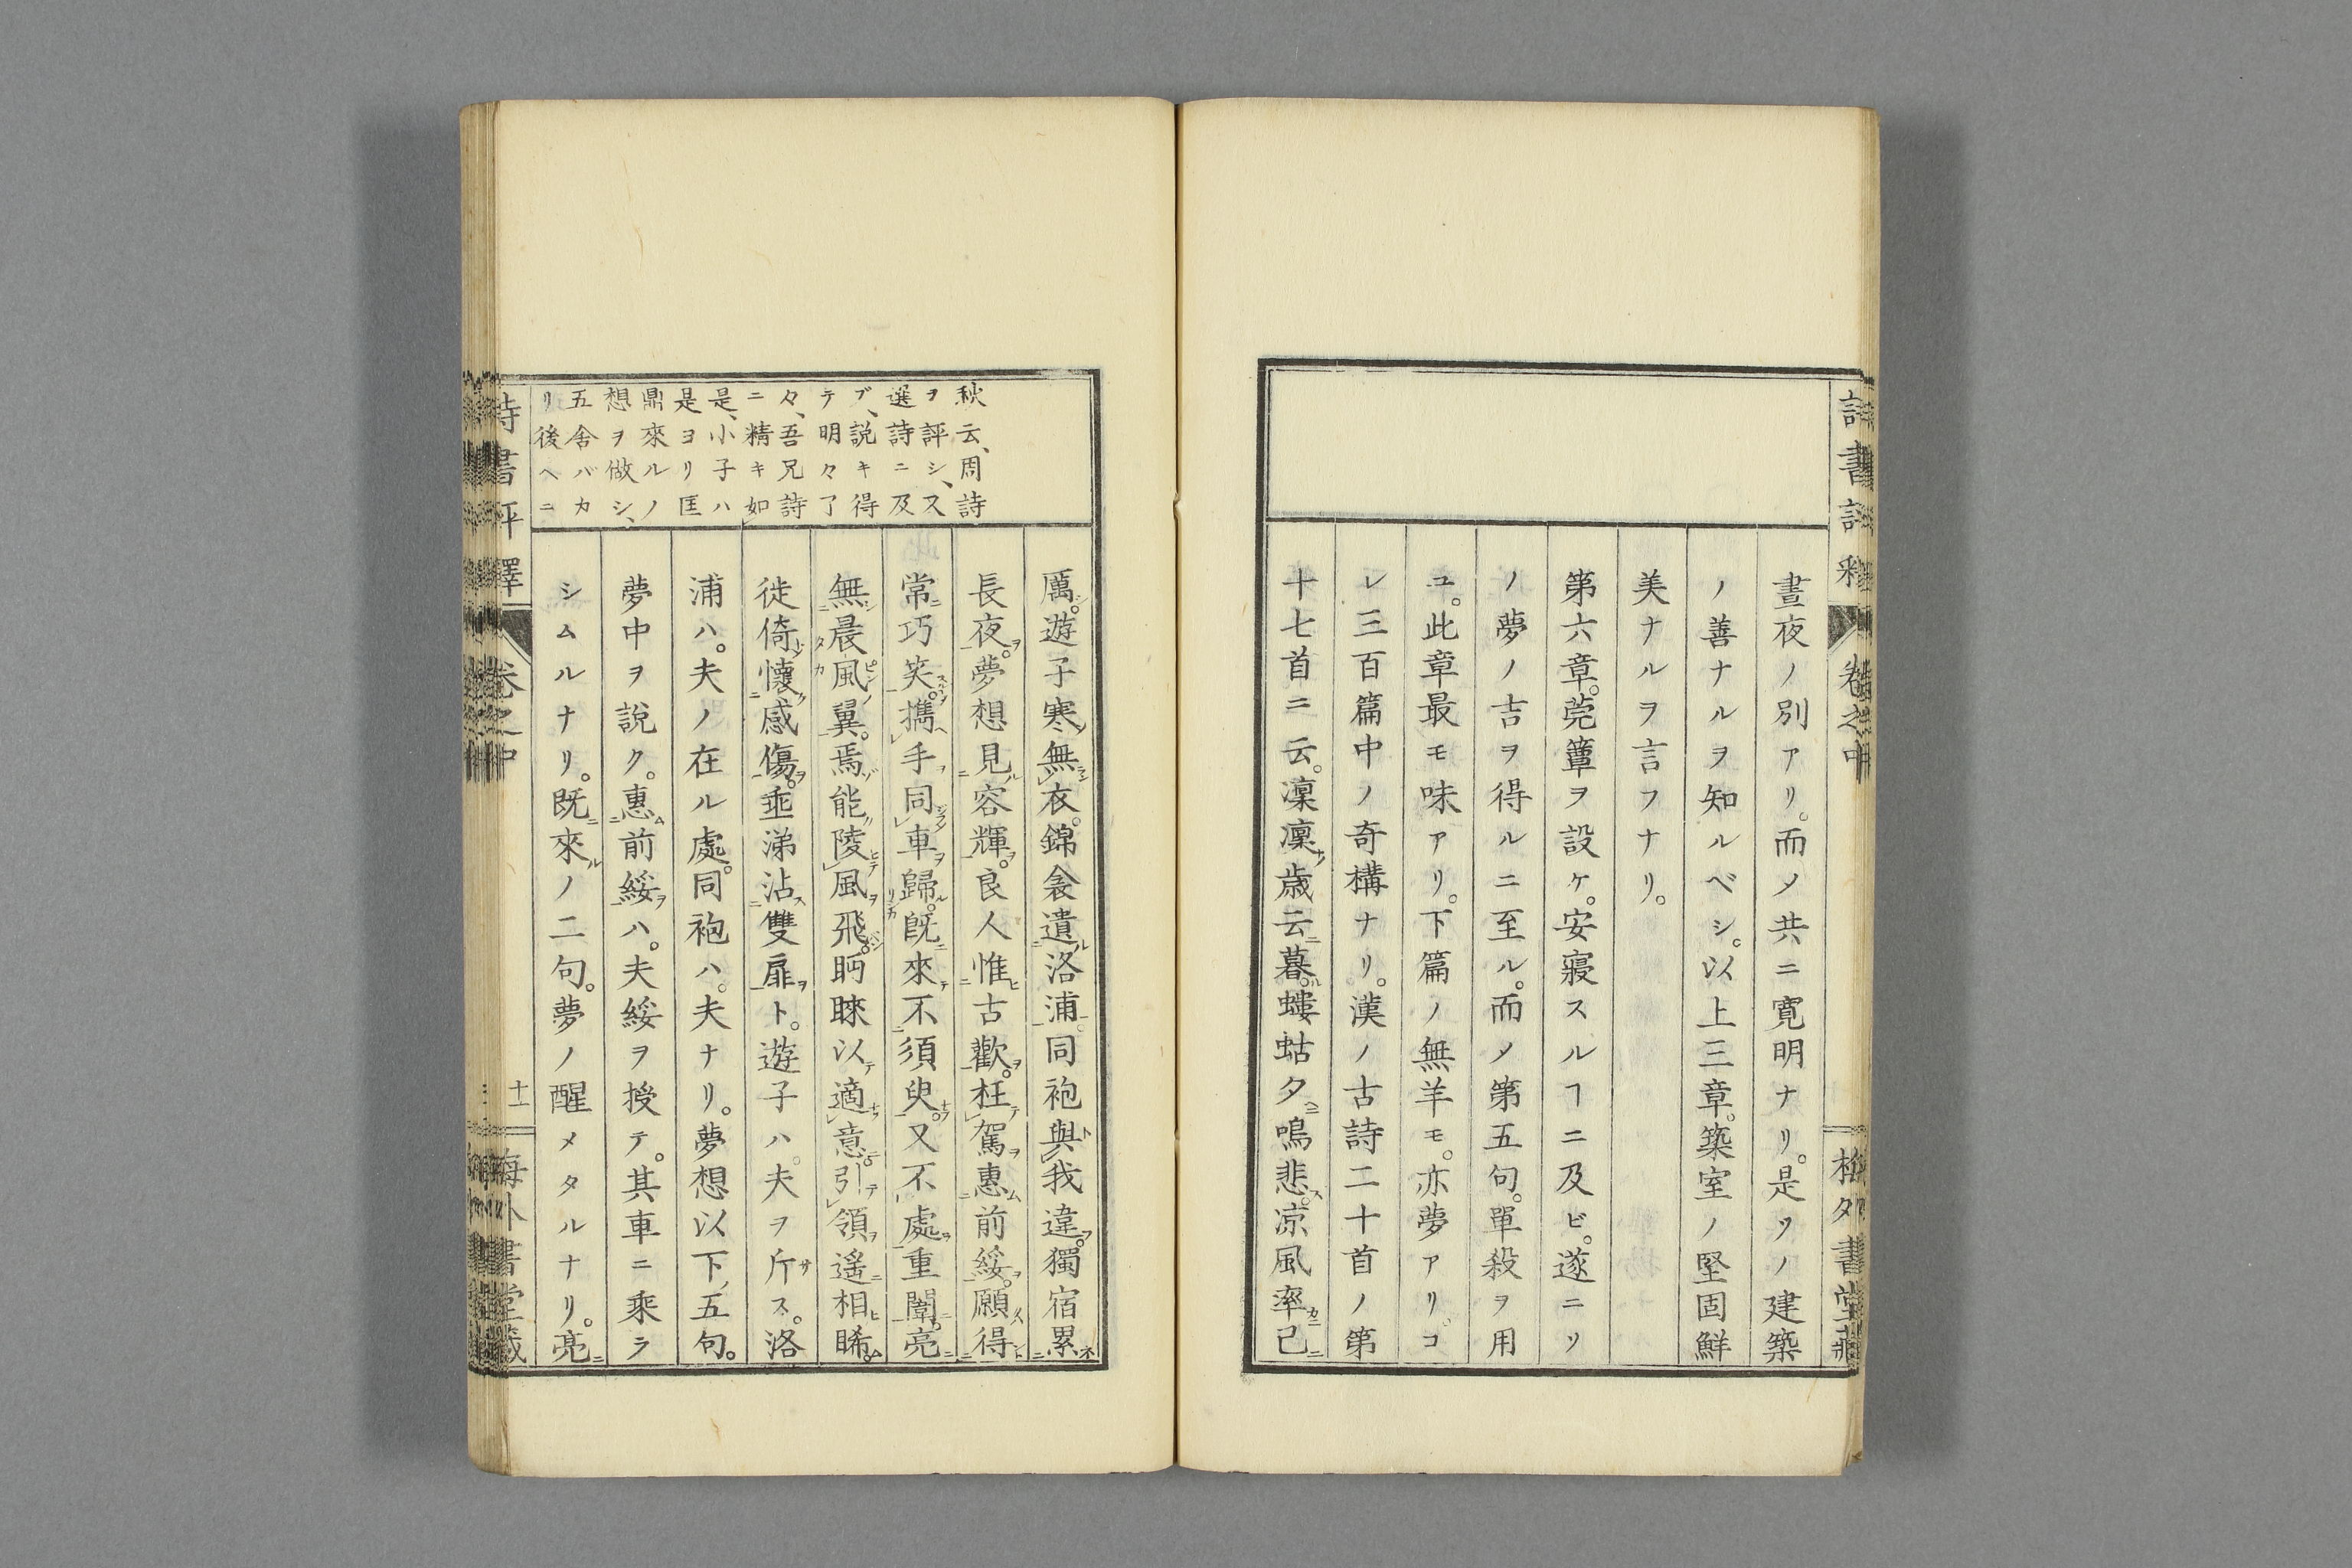 晝夜ノ別アリ。而〆共ニ寛明ナリ。是ソノ建築
ノ善ナルヲ知ルベシ。以上三章。築室ノ堅固鮮
美ナルヲ言フナリ。
第六章。莞簟ヲ設ケ。安寢スルヿニ及ビ。遂ニソ
ノ夢ノ吉ヲ得ルニ至ル。而〆第五句。單殺ヲ用
ユ。此章最モ味アリ。下篇ノ無羊モ。亦夢アリ。コ
レ三百篇中ノ奇構ナリ。漢ノ古詩二十首ノ第
十七首ニ云。凜凜歳云暮。螻蛄夕鳴悲。凉風率已
厲。遊子寒無衣。錦衾遺洛浦。同袍與我違。獨宿累
長夜。夢想見容輝。良人惟古歡。枉駕惠前綏。願得
常巧笑。携手同車歸。既來不須臾。又不處重闈。亮
無晨風翼。焉能陵風飛。眄睞以適意。引領遙相睎。
徙倚懷感傷。垂涕沾雙扉ト。遊子ハ。夫ヲ斥ス。洛
浦ハ。夫ノ在ル處。同袍ハ。夫ナリ。夢想以下、五句。
夢中ヲ說ク。惠前綏ハ。夫綏ヲ授テ。其車ニ乘ラ
シムルナリ。既來ノ二句。夢ノ醒メタルナリ。亮
秋云、周詩
ヲ評シ、又
選詩ニ及
ブ、説キ得
テ明々了
々、吾兄詩
ニ精キ如
是、小子ハ
是ヨリ匡
鼎來ルノ
想ヲ做シ、
五舍バカ
リ後ヘニ
卷之中
十一